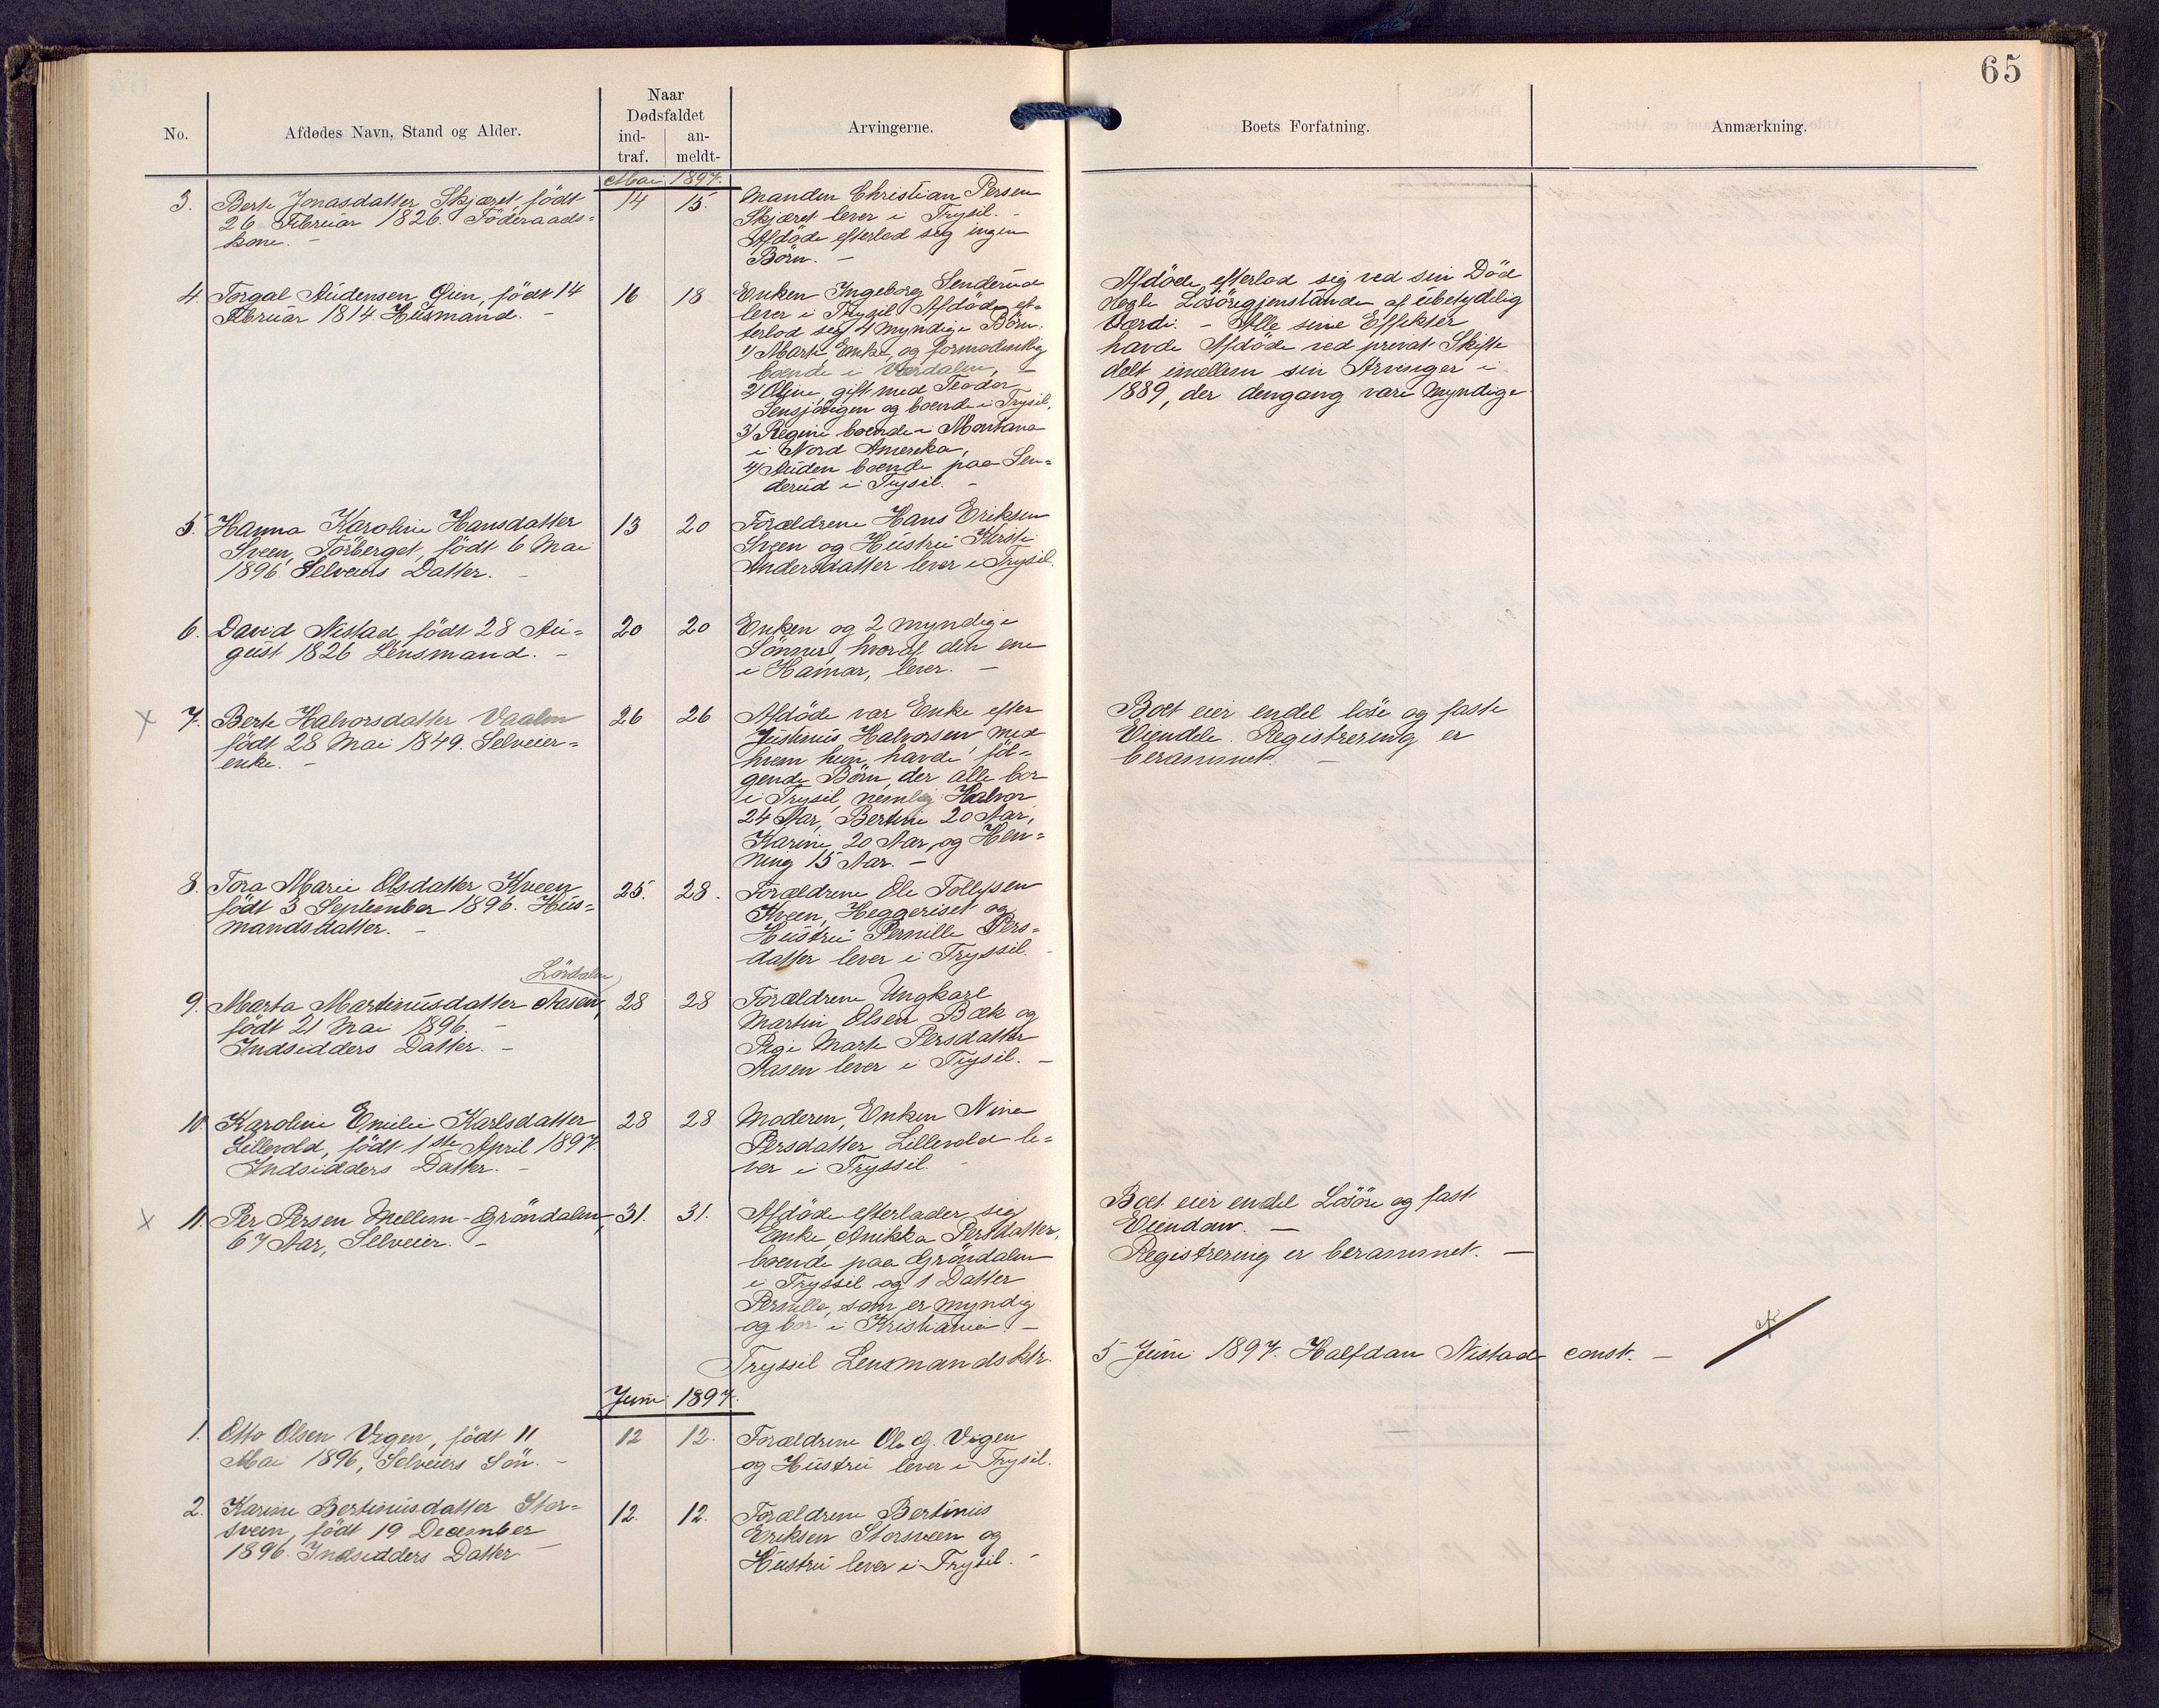 65
No.
Afdødes Navn, Stand og Alder.
Naar
Dødsfaldet
ind-
traf.
an-
meldt-
Arvingerne.
Boets Forfatning.
Anmærkning.
Mai 1897.
3. Berte Jonasdatter Skjæret, født 14 15.
26 Februar 1826. Föderaads-
kone. -
Manden Christian Persen
Skjæret lever i Trysil. -
Afdöde efterlod sig ingen
Börn. -
4. Torgal Audensen Öien, født 14 16 18
Februar 1814. Husmand. -
Enken Ingeborg Senderud
lever i Trysil. Afdöde ef-
terlod sig 4 myndige Börn:
1) Marte, Enke, og formodentlig
boende i Værdalen, -
2) Oline, gift med Teodor
Sensjövigen og boende i Trysil,
3) Regine boende i Montana
i Nord Amerika,
4) Auden boende paa Sen-
derud i Trysil. -
Afdöde efterlod sig ved sin Död
nogle Lösöregjenstande af ubetydelig
Værdi. - Alle sine Effekter
havde Afdöde ved privat Skifte
delt imellem sin Arvinger i
1889, der dengang vare myndige
5. Hanna Karoline Hansdatter 13 20
Sveen, Törberget, født 6 Mai
1896. Selveiers Datter. -
Forældrene Hans Eriksen
Sveen og Hustru Kirsti
Andersdatter lever i Trysil.
6. David Nistad, født 28 Au- 20 20
gust 1826 Lensmand. -
Enken og 2 myndige
Sönner, hvoraf den ene
i Hamar, lever. -
x 7. Berte Halvorsdatter Vaalen 26 26
født 28 Mai 1849. Selveier-
enke. -
Afdöde var Enke efter
Justinus Halvorsen med
hvem hun havde föl-
gende Börn, der alle bor
i Trysil, nemlig Halvor
24 Aar, Bertine 20 Aar,
Karine 20 Aar, og Hen-
ning 15 Aar. -
Boet eier endel löse og faste
Eiendele. Registrering er
berammet. -
8. Tora Marie Olsdatter Kveen 25. 28.
født 3 September 1896. Hus-
mandsdatter. -
Forældrene Ole Tollefsen
Kveen, Heggeriset og
Hustru Pernille Pers-
datter lever i Tryssil. -
Lördalen
9. Marta Martinusdatter Aasen, 28 28
født 21 Mai 1896. -
Indsidders Datter. -
Forældrene Ungkarl
Martin Olsen Bæk og
Pige Marte Persdatter
Aasen lever i Trysil. -
10. Karoline Emilie Karlsdatter 28 28
Lillevold, født 1ste April 1897.
Indsidders Datter. -
Moderen, Enken Nina
Persdatter Lillevold le-
ver i Tryssil. -
x 11. Per Persen Mellem-Gröndalen, 31. 31.
67 Aar, Selveier. -
Afdöde efterlader sig
Enke Anikka Persdatter,
boende paa Gröndalen
i Tryssil og 1 Datter
Pernille, som er myndig
og bor i Kristiania. -
Boet eier endel Lösöre og fast
Eiendom. -
Registrering er berammet. -
Tryssil Lensmandsktr. 5 Juni 1897. Halfdan Nistad const. -
Juni 1897.
1. Otto Olsen Vegen, født 11 12 12.
Mai 1896, Selveiers Sön. -
Forældrene Ole G. Vegen
og Hustru lever i Trysil.
2. Karine Bertinusdatter Stor- 12. 12.
sveen, født 19 December
1896. Indsidders Datter -
Forældrene Bertinus
Eriksen Storsveen og
Hustru lever i Trysil. -